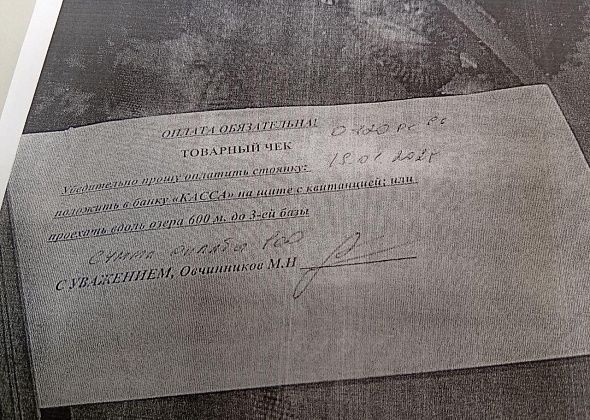 ОПЛАТА ОБЯЗАТЕЛЬНА!
ТОВАРНЫЙ ЧЕК
Убедительно прошу оплатить стоянку:
положить в банку «КАССА» на щите с квитанцией; или
проехать вдоль озера 600 м. до 3-ей базы
Сумма
С УВАЖЕНИЕМ, Овчинников М.Н